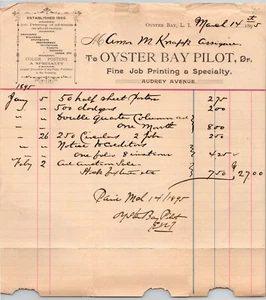 ESTABLISHED 1880
COLOR POSTERS
A SPECIALTY
OYSTER BAY, L. I. March 14th 1895
M Amor M Knapp Assignee
To OYSTER BAY PILOT, Dr.
Fine Job Printing a Specialty.
AUDREY AVENUE.
1895
Jany 5 50 half sheet Posters 275
" " 500 dodgers 200
" " Double Quarter Column ad
One Month 800
" 26 250 Circulars 2 Job 250
" " Notice to Creditors
One folio 8 insertions 425
Feby 2 Ad Auction Sale
750 27 00
Paid Mch 14/1895
Oyster Bay Pilot